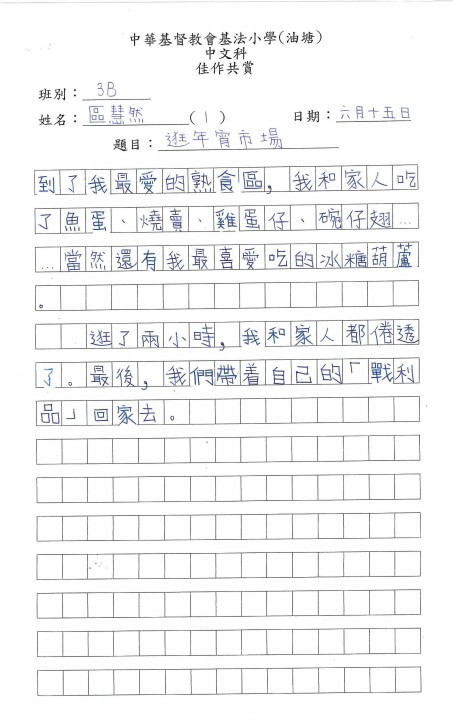 中華基督教會基法小學(油塘)
中文科
佳作共賞
班別：3B
姓名：區慧然(1) 日期：六月十五日
題目：逛年宵市場
到了我最愛的熟食區，我和家人吃
了魚蛋、燒賣、雞蛋仔、碗仔翅…
…當然還有我最喜愛吃的冰糖葫蘆
。
逛了兩小時，我和家人都倦透
了。最後，我們帶着自己的「戰利
品」回家去。